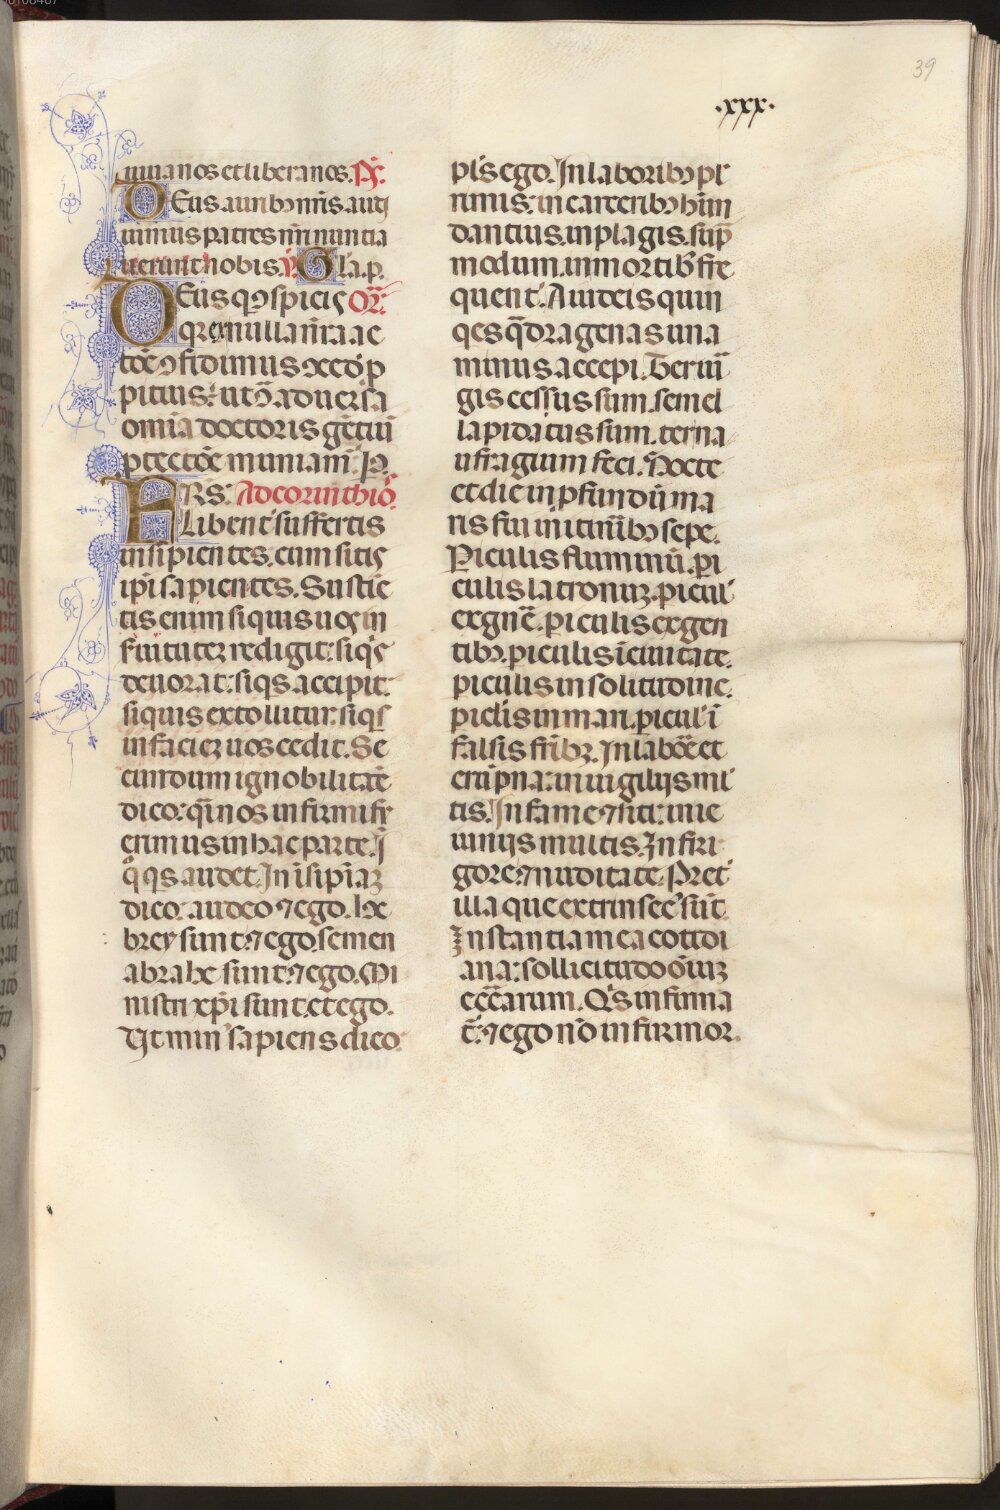 39
.xxx.
iuuanos et libera nos. Ps.
DEus auribꝫ nr̄is audi
uimus patres nr̄i nuntia
uerunt nobis. V. Gla. p.
DEus qͥ ꝯspicis Or̄.
qꝛ ex nulla nr̄a ac
tōe ꝯfidimus ꝯcede p
pitius: ut ꝯ aduersa
omīa doctoris gētiū
ptectōe muniam̄. P.
FRS: Ad corinthiōs
Libent̄ suffertis
insipientes. cum sitis
ip̄i sapientes. Sustīe
tis enim siquis uos in
ſuituteꝫ redigit: siqͥs
deuorat: siqͥs accipit:
siquis extollitur: siqͥs
in facieꝫ uos cedit. Se
cundum ignobilitatē
dico: qͣi nos infirmi fu
erimus in hac parte. Ī
qͦ qͥs audet. In īsipīaꝫ
dico: audeo ⁊ ego. he
brey sunt: ⁊ ego. semen
abrahe sunt: ⁊ ego. Mi
nistri xp̄i sunt et ego.
Ut min̄ sapiens dico.
pl̄s ego. In laboribꝫ plu
rimis: in carceribꝫ hūn
dantius. in plagis. sup̄
modum. in mortibꝫ fre
quent̄. A iudeis quin
qes qͣdragenas una
minus accepi. Ter uir̄
gis cessus sum. semel
lapidatus sum. ter na
ufragium feci. Nocte
et die in pfundū ma
ris fui in itinībꝫ sepe.
Piculis fluminū. pi
culis latronuꝫ. picul̄
ex gnē̄. piculis ex gen
tibꝫ. piculis ī ciuitate.
piculis in solitudine.
piclis in mari. picul̄ ī
falsis frībꝫ. In labōe et
erūpna: in uigilijs ml̄
tis. In fame ⁊ siti: in ie
iunijs multis. In fri
gore ⁊ nuditate. Pret̄
illa que extrinsec̄ sūt:
Instantia mea cottidi
ana: sollicitudo oīuꝫ
eccārum. Qͥs infirma
t̄: ⁊ ego nō infirmor.